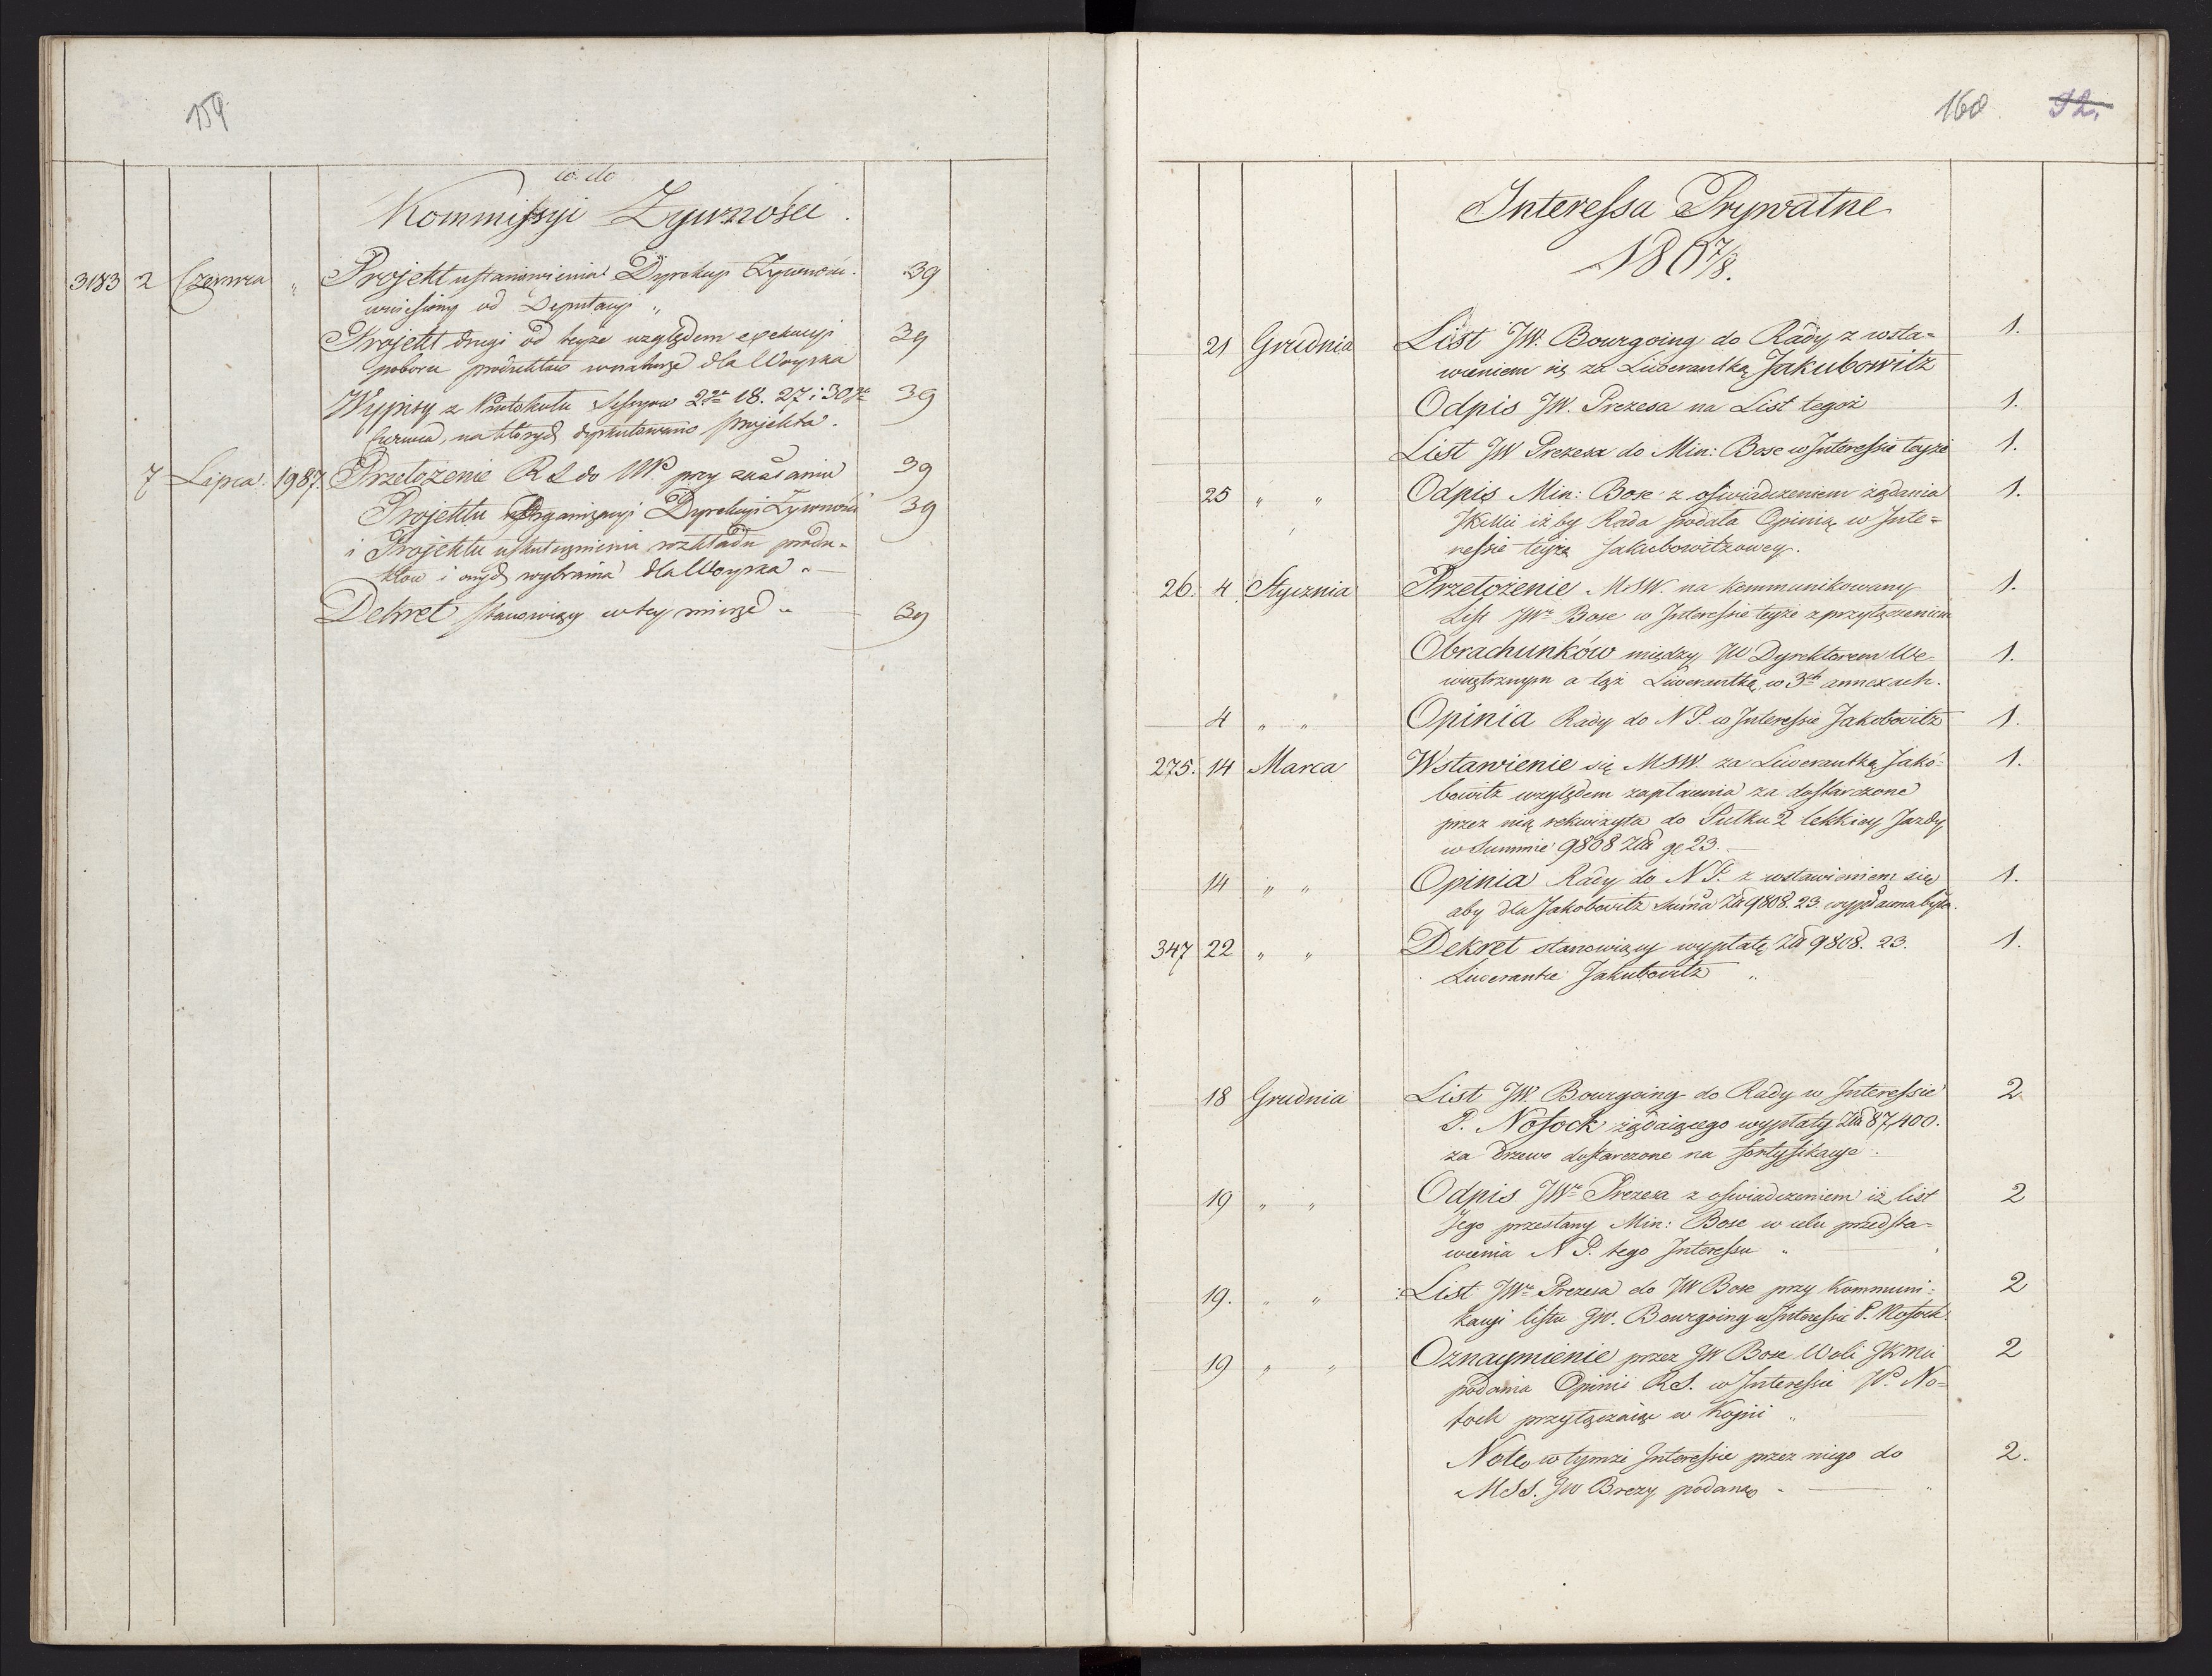 159
co. do
Kommissyi Zywności.
3183 2 Czerwca „ Projekt ustanowienia Dyrekcyi Zywności. 39
wniesiony od Deputacyi „
Projekt drugi od teyże względem exekucyi 39
poboru produktów w naturze dla Woyska
Wypisy z Protokułu Sessyow 18. 27 i 30 39
Czerwca, na których dyskutowano projekta.
7 Lipca. 1987. Przełożenie R S do NP. przy zesłaniu 39
Projektu Organizacyi Dyrekcyi Zywności 39
i Projektu uskutecznienia rozkładu produ-
ktow i onych wybrania dla Woyska „
Dekret stanowiący w tey mierze „ 39
160. 92.
Interessa Prywatne
1807/8.
21 Grudnia List JW. Bourgoing do Rady z wsta- 1.
wieniem się za Liwerantką Jakubowitz
Odpis JW. Prezesa na List tegoż 1.
List JW Prezesa do Min: Bose w Interessie teyże 1.
25 „ „ Odpis Min: Bose z oświadczeniem żądania 1.
JKMci iż by Rada podała Opinią w Inte-
ressie teyże Jakubowitzowey.
26. 4 Stycznia Przełożenie MSW. na kommunikowany 1.
List JWo Bose w Interessie teyże z przyłączeniem
Obrachunków między JW Dyrektorem We- 1.
wnętrznym a tąż Liwerantką, w 3ch annexach.
4 „ „ Opinia Rady do N P. w Interessie Jakobowitz 1.
275. 14 Marca Wstawienie się MSW. za Liwerantką Jako- 1.
bowitz względem zapłacenia za dostarczone
przez nią rekwizyta do Pułku 2 lekkiey Jazdy
w Summie 9808 Złł gr 23.
14 „ „ Opinia Rady do N P. z wstawieniem się 1.
aby dla Jakobowitz Suma Złł 9808. 23. wypłacona była.
347 22 „ „ Dekret stanowiący wypłatę Złł 9808. 23. 1.
Liwerantce Jakubowitz „
18 Grudnia List JW. Bourgoing do Rady w Interessie 2
P. Nosock żądaiącego wypłaty Złł 87,400.
za Drzewo dostarczone na fortyfikacye.
19 „ „ Odpis JWo Prezesa z oświadczeniem iż list 2
Jego przesłany Min: Bose w celu przedsta-
wienia N P. tego Interessu „
19. „ „ List JWo Prezesa do JW Bose przy Kommuni- 2
kacyi listu JW. Bourgoing w Interessie P. Nosock.
19 „ „ Oznaymienie przez JW Bose Woli JKMci 2
podania Opinii RS. w Interessie P. No-
sock przyłączaiąc w Kopii „
Notę w tymże Interessie przez niego do 2.
MSS. JW Brezy podaną